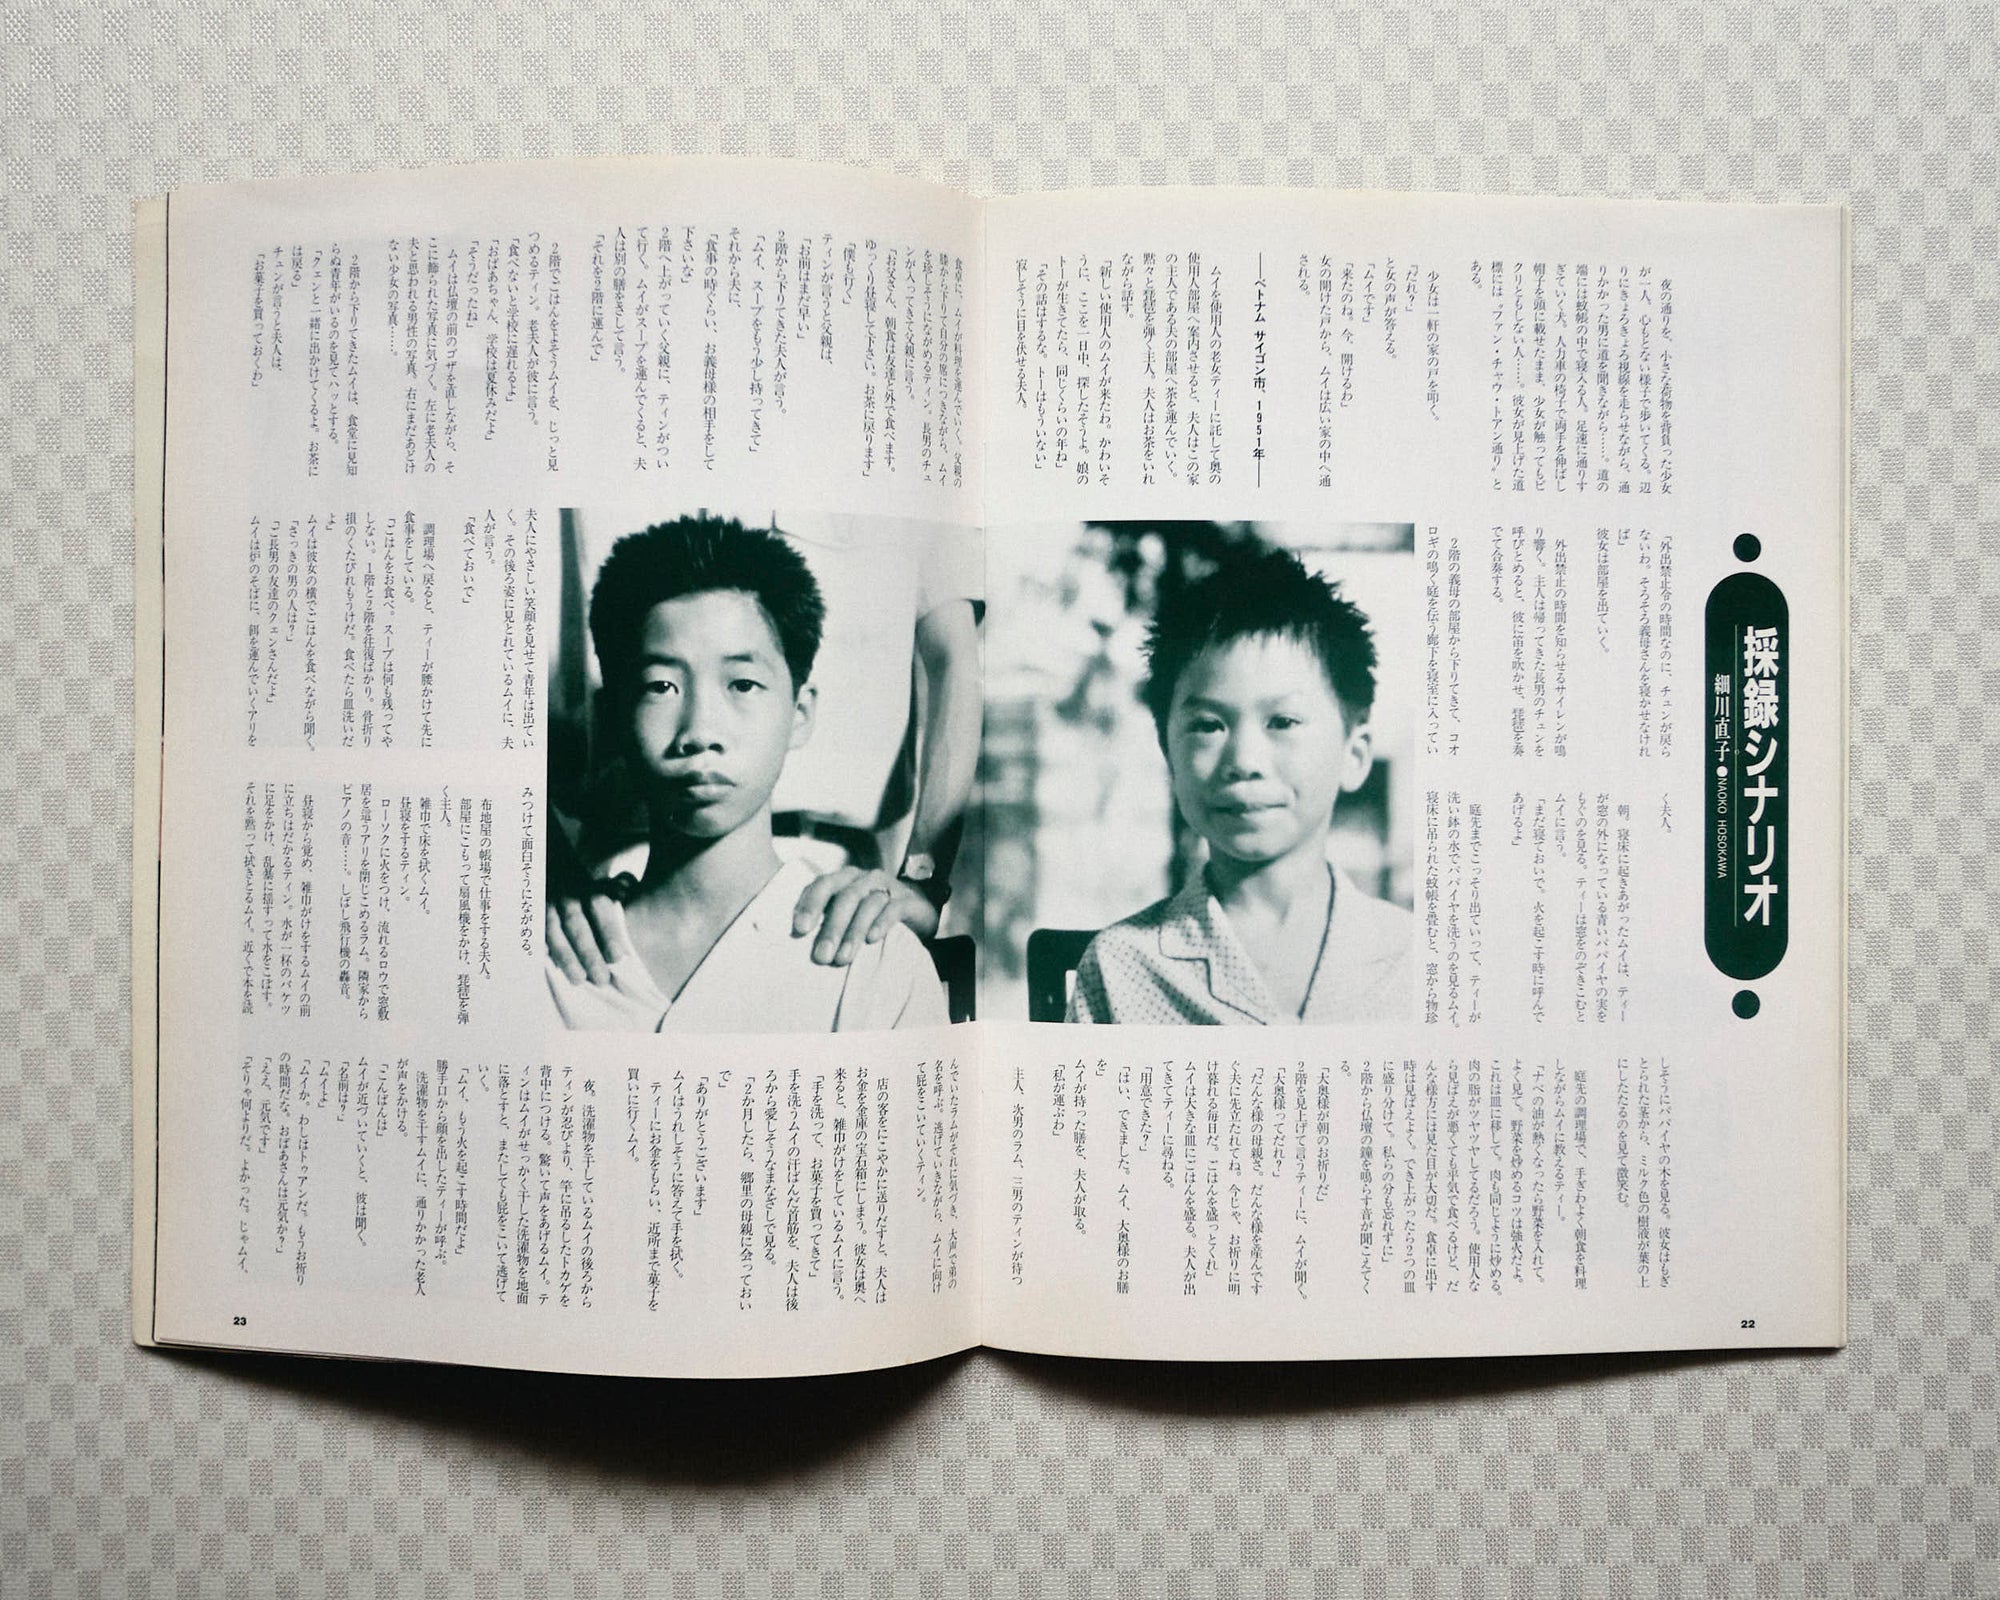 採録シナリオ
細川直子●NAOKO HOSOKAWA
夜の通りを、小さな荷物を背負った少女
が一人、心もとない様子で歩いてくる。辺
りにきょろきょろ視線を走らせながら、通
りかかった男に道を聞きながら……。道の
端には蚊帳の中で寝入る人。足速に通りす
ぎていく夫。人力車の椅子で両手を伸ばし
帽子を頭に載せたまま、少女が触ってもビ
クリともしない人……。彼女が見上げた道
標には〝ファン・チャウ・トアン通り〟と
ある。
少女は一軒の家の戸を叩く。
「だれ?」
と女の声が答える。
「ムイです」
「来たのね。今、開けるわ」
女の開けた戸から、ムイは広い家の中へ通
される。
──ベトナム サイゴン市、1951年──
ムイを使用人の老女ティーに託して奥の
使用人部屋へ案内させると、夫人はこの家
の主人である夫の部屋へ茶を運んでいく。
黙々と琵琶を弾く主人。夫人はお茶をいれ
ながら話す。
「新しい使用人のムイが来たわ。かわいそ
うに、ここを一日中、探したそうよ。娘の
トーが生きてたら、同じくらいの年ね」
「その話はするな。トーはもういない」
寂しそうに目を伏せる夫人。
「外出禁止令の時間なのに、チュンが戻ら
ないわ。そろそろ義母さんを寝かせなけれ
ば」
彼女は部屋を出ていく。
外出禁止の時間を知らせるサイレンが鳴
り響く。主人は帰ってきた長男のチュンを
呼びとめると、彼に笛を吹かせ、琵琶を奏
でて合奏する。
2階の義母の部屋から下りてきて、コオ
ロギの鳴く庭を伝う廊下を寝室に入ってい
く夫人。
朝。寝床に起きあがったムイは、ティー
が窓の外になっている青いパパイヤの実を
もぐのを見る。ティーは窓をのぞきこむと
ムイに言う。
「まだ寝ておいで。火を起こす時に呼んで
あげるよ」
庭先までこっそり出ていって、ティーが
洗い鉢の水でパパイヤを洗うのを見るムイ。
寝床に吊られた蚊帳を畳むと、窓から物珍
しそうにパパイヤの木を見る。彼女はもぎ
とられた茎から、ミルク色の樹液が葉の上
にしたたるのを見て微笑む。
庭先の調理場で、手ぎわよく朝食を料理
しながらムイに教えるティー。
「ナベの油が熱くなったら野菜を入れて。
よく見て。野菜を炒めるコツは強火だよ。
これは皿に移して。肉も同じように炒める。
肉の脂がツヤツヤしてるだろう。使用人な
ら見ばえが悪くても平気で食べるけど、だ
んな様方には見た目が大切だ。食卓に出す
時は見ばえよく。でき上がったら2つの皿
に盛り分けて。私らの分も忘れずに」
2階から仏壇の鐘を鳴らす音が聞こえてく
る。
「大奥様が朝のお祈りだ」
2階を見上げて言うティーに、ムイが聞く。
「大奥様ってだれ?」
「だんな様の母親さ。だんな様を産んです
ぐ夫に先立たれてね。今じゃ、お祈りに明
け暮れる毎日だ。ごはんを盛っとくれ」
ムイは大きな皿にごはんを盛る。夫人が出
てきてティーに尋ねる。
「用意できた?」
「はい、できました。ムイ、大奥様のお膳
を」
ムイが持った膳を、夫人が取る。
「私が運ぶわ」
主人、次男のラム、三男のティンが待つ
22
食堂に、ムイが料理を運んでいく。父親の
膝から下りて自分の席につきながら、ムイ
を珍しそうにながめるティン。長男のチュ
ンが入ってきて父親に言う。
「お父さん、朝食は友達と外で食べます。
ゆっくり昼寝して下さい。お茶に戻ります」
「僕も行く」
ティンが言うと父親は、
「お前はまだ早い」
2階から下りてきた夫人が言う。
「ムイ、スープをもう少し持ってきて」
それから夫に、
「食事の時ぐらい、お義母様の相手をして
下さいな」
2階へ上がっていく父親に、ティンがつい
て行く。ムイがスープを運んでくると、夫
人は別の膳をさして言う。
「それを2階に運んで」
2階でごはんをよそうムイを、じっと見
つめるティン。老夫人が彼に言う。
「食べないと学校に遅れるよ」
「おばあちゃん、学校は夏休みだよ」
「そうだったね」
ムイは仏壇の前のゴザを直しながら、そ
こに飾られた写真に気づく。左に老夫人の
夫と思われる男性の写真、右にまだあどけ
ない少女の写真……。
2階から下りてきたムイは、食堂に見知
らぬ青年がいるのを見てハッとする。
「クェンと一緒に出かけてくるよ。お茶に
は戻る」
チュンが言うと夫人は、
「お菓子を買っておくわ」
夫人にやさしい笑顔を見せて青年は出てい
く。その後ろ姿に見とれているムイに、夫
人が言う。
「食べておいで」
調理場へ戻ると、ティーが腰かけて先に
食事をしている。
「ごはんをお食べ。スープは何も残ってや
しない。1階と2階を往復ばかり。骨折り
損のくたびれもうけだ。食べたら皿洗いだ
よ」
ムイは彼女の横でごはんを食べながら聞く。
「さっきの男の人は?」
「ご長男の友達のクェンさんだよ」
ムイは炉のそばに、餌を運んでいくアリを
みつけて面白そうにながめる。
布地屋の帳場で仕事をする夫人。
部屋にこもって扇風機をかけ、琵琶を弾
く主人。
雑巾で床を拭くムイ。
昼寝をするティン。
ローソクに火をつけ、流れるロウで窓敷
居を這うアリを閉じこめるラム。隣家から
ピアノの音……。しばし飛行機の轟音。
昼寝から覚め、雑巾がけをするムイの前
に立ちはだかるティン。水が一杯のバケツ
に足をかけ、乱暴に揺すって水をこぼす。
それを黙って拭きとるムイ。近くで本を読
んでいたラムがそれに気づき、大声で弟の
名を呼ぶ。逃げていきながら、ムイに向け
て屁をこいていくティン。
店の客をにこやかに送りだすと、夫人は
お金を金庫の宝石箱にしまう。彼女は奥へ
来ると、雑巾がけをしているムイに言う。
「手を洗って、お菓子を買ってきて」
手を洗うムイの汗ばんだ首筋を、夫人は後
ろから愛しそうなまなざしで見る。
「2か月したら、郷里の母親に会っておい
で」
「ありがとうございます」
ムイはうれしそうに答えて手を拭く。
ティーにお金をもらい、近所まで菓子を
買いに行くムイ。
夜。洗濯物を干しているムイの後ろから
ティンが忍びより、竿に吊るしたトカゲを
背中につける。驚いて声をあげるムイ。テ
ィンはムイがせっかく干した洗濯物を地面
に落とすと、またしても屁をこいて逃げて
いく。
「ムイ、もう火を起こす時間だよ」
勝手口から顔を出したティーが呼ぶ。
洗濯物を干すムイに、通りかかった老人
が声をかける。
「こんばんは」
ムイが近づいていくと、彼は聞く。
「名前は?」
「ムイよ」
「ムイか。わしはトゥアンだ。もうお祈り
の時間だな。おばあさんは元気か?」
「ええ、元気です」
「そりゃ何よりだ。よかった。じゃムイ、
23